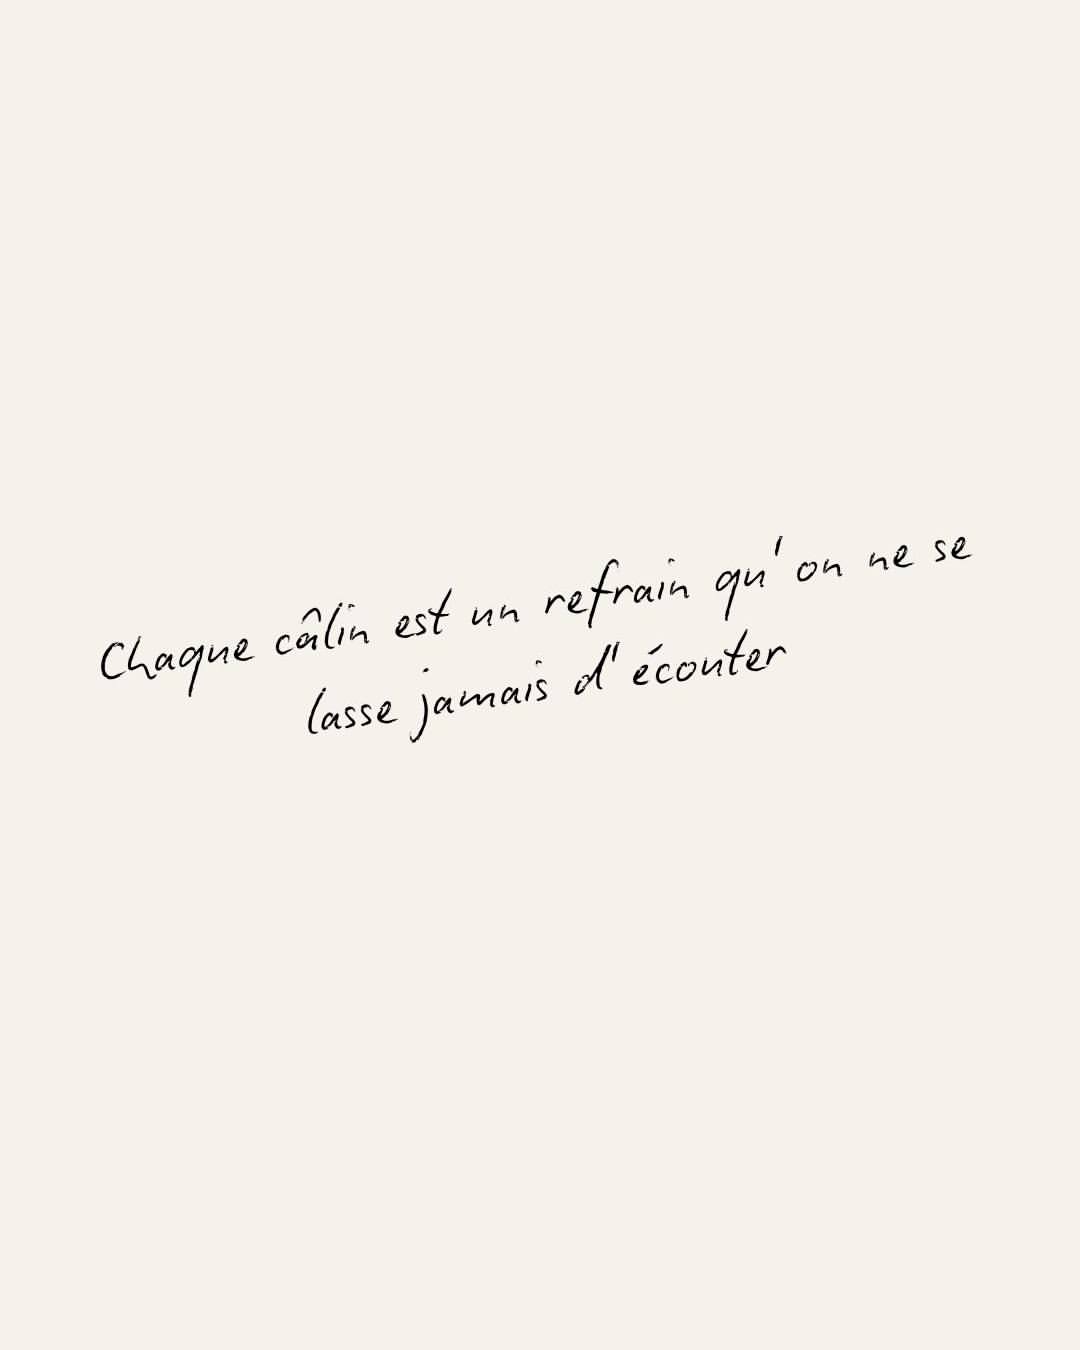 Chaque câlin est un refrain qu'on ne se
lasse jamais d'écouter